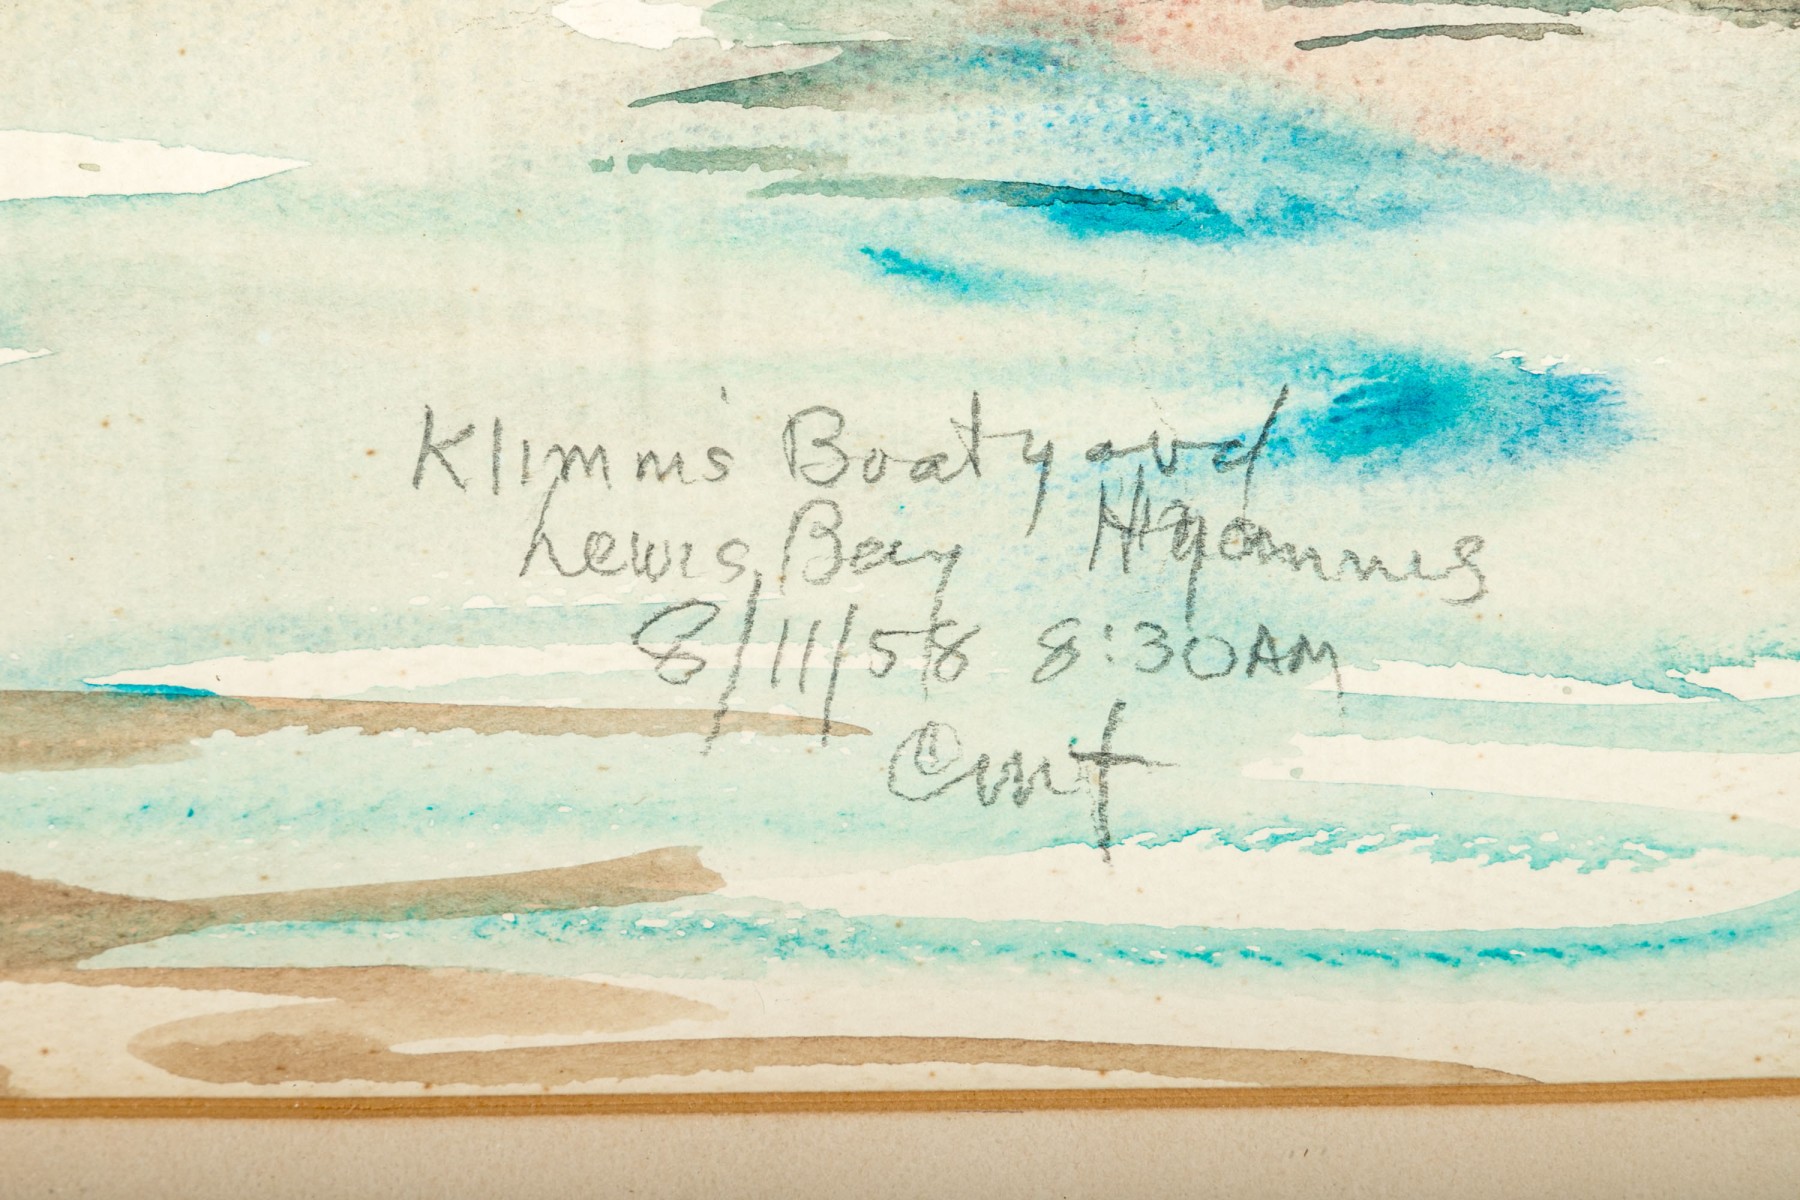 Klimm's Boatyard
Lewis Bay Hyannis
8/11/58 8:30AM